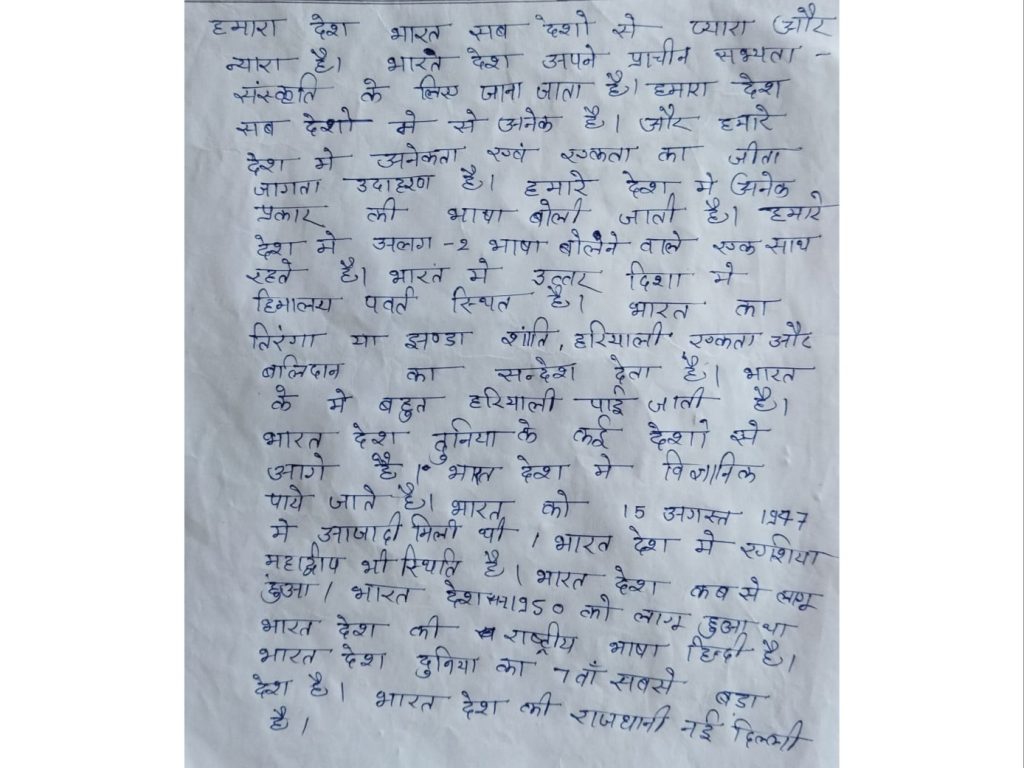 हमारा देश भारत सब देशो से प्यारा और
न्यारा है। भारत देश अपने प्राचीन सभ्यता -
संस्कृति के लिए जाना जाता है। हमारा देश
सब देशो मे से अनेक है। और हमारे
देश मे अनेकता एवं एकता का जीता
जागता उदाहरण है। हमारे देश मे अनेक
प्रकार की भाषा बोली जाती है। हमारे
देश मे अलग -2 भाषा बोलने वाले एक साथ
रहते है। भारत मे उत्तर दिशा मे
हिमालय पवर्त स्थित है। भारत का
तिरंगा या झण्डा शांति, हरियाली एकता और
बलिदान का सन्देश देता है। भारत
के मे बहुत हरियाली पाई जाती है।
भारत देश दुनिया के कई देशो से
आगे है। भारत देश मे विज्ञानिक
पाये जाते है। भारत को 15 अगस्त 1947
मे आजादी मिली थी। भारत देश मे एशिया
महाद्वीप भी स्थिति है। भारत देश कब से लागू
हुआ। भारत देश 1950 को लागू हुआ था
भारत देश की राष्ट्रीय भाषा हिन्दी है।
भारत देश दुनिया का 7वाँ सबसे बडा
देश है। भारत देश की राजधानी नई दिल्ली
है।